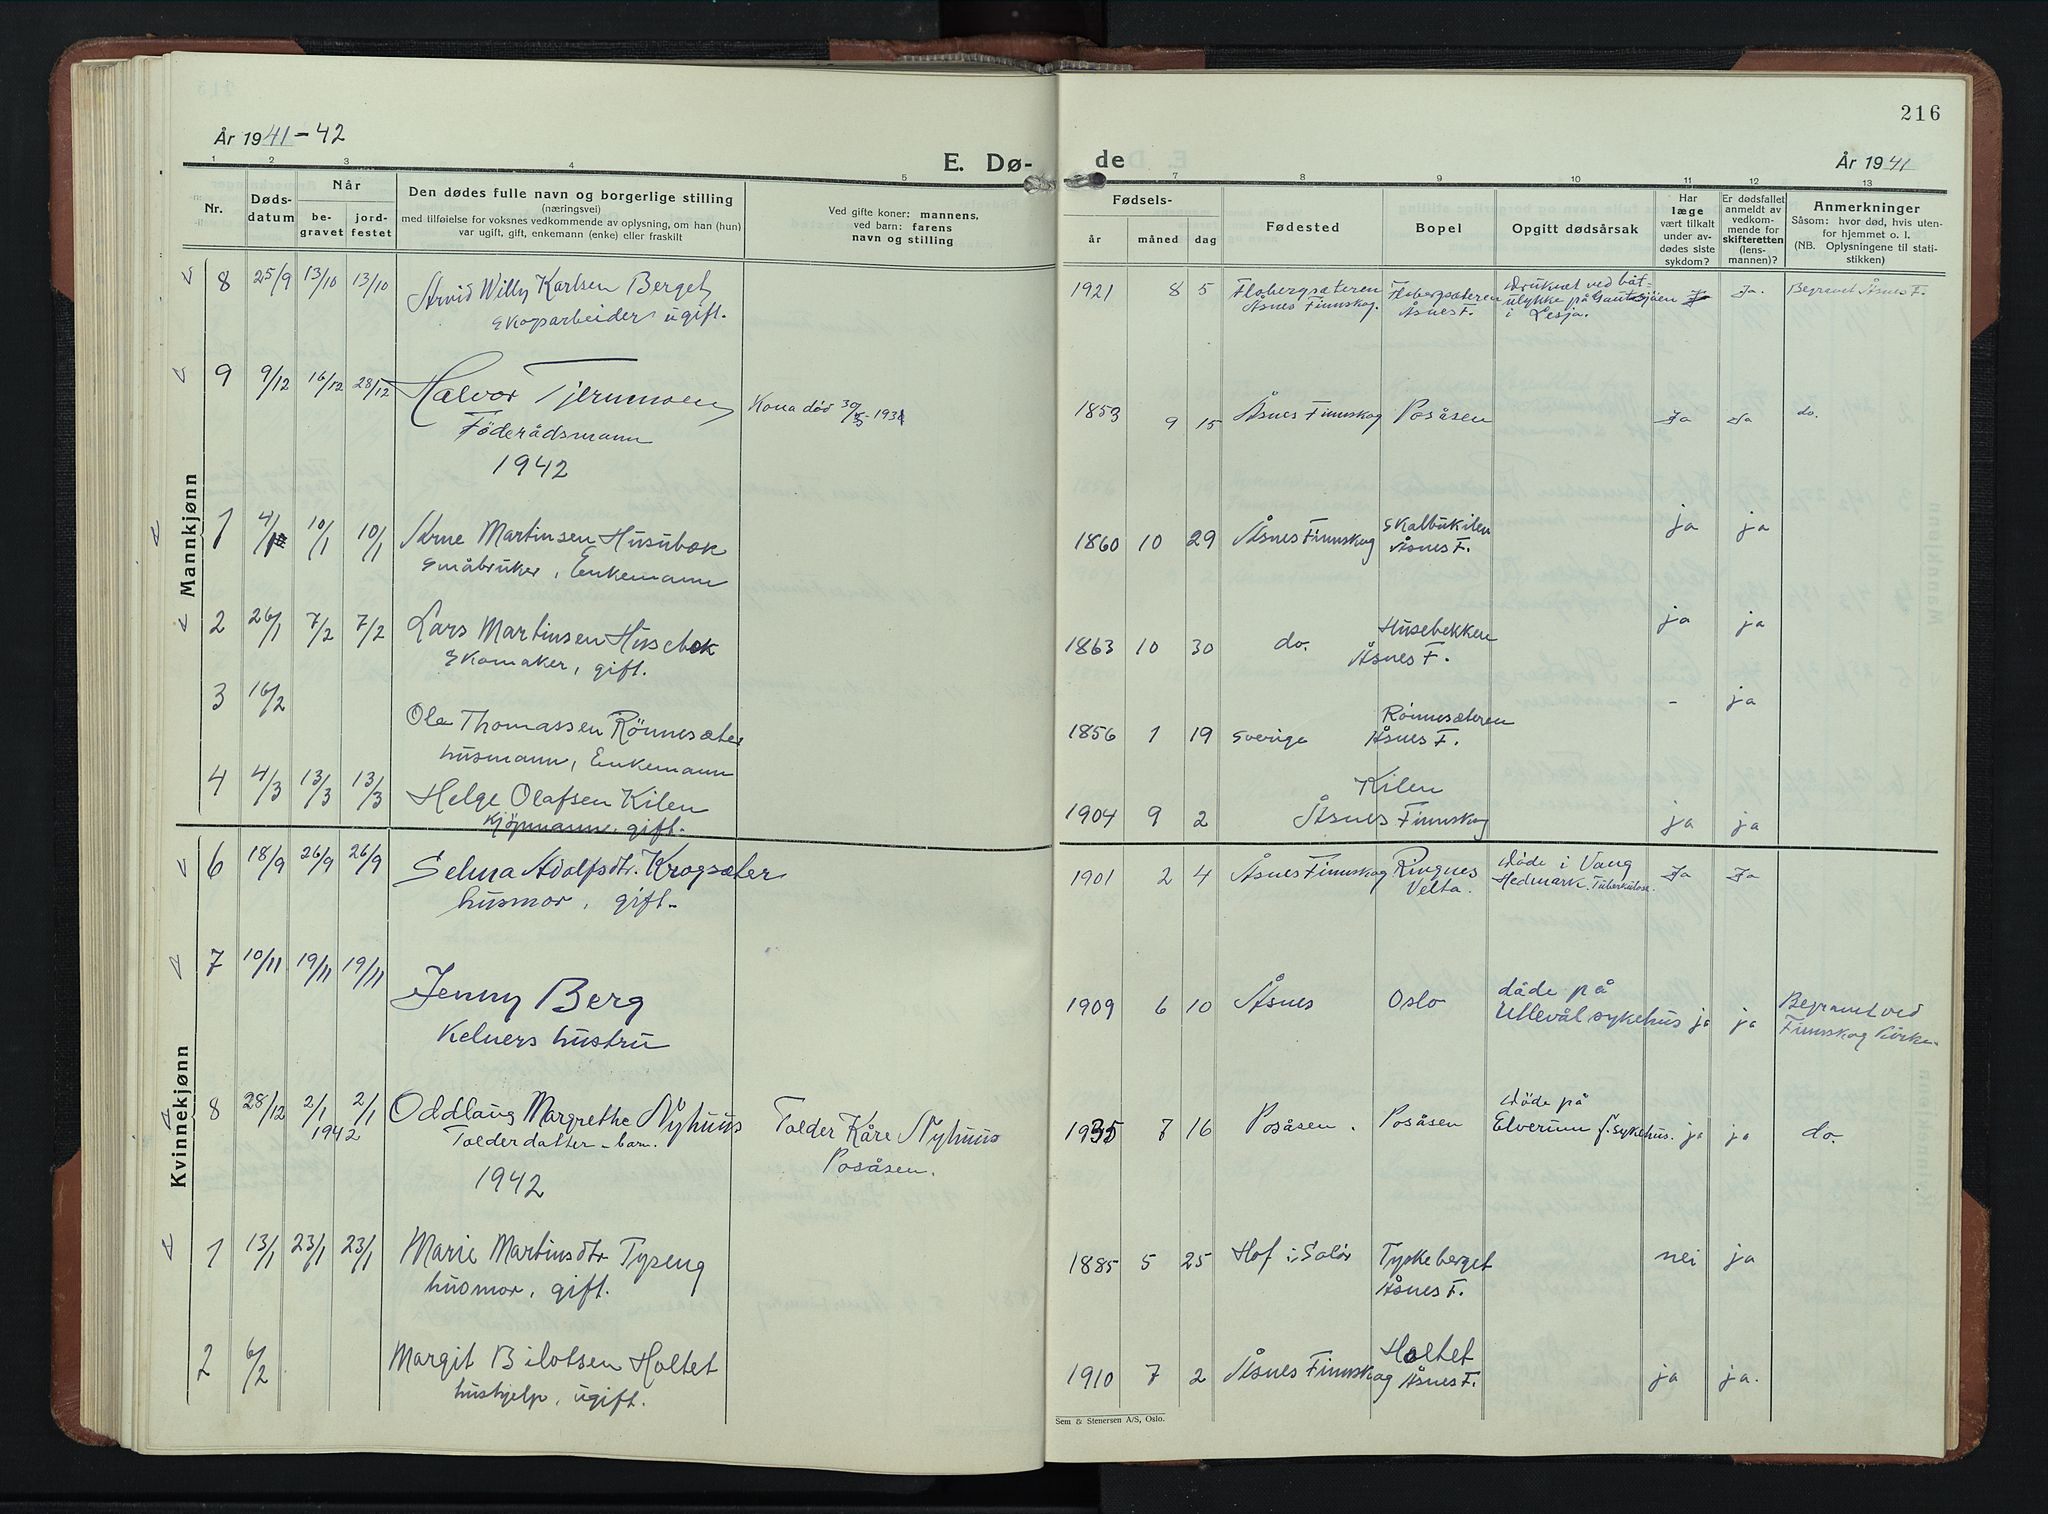 År 1941-42
E. Dø-
de
216
År 1941
1 2 3 4 5 7 8 9 10 11 12 13
Nr.
Døds-
datum
Når
be-
gravet
jord-
festet
Den dødes fulle navn og borgerlige stilling
(næringsvei)
med tilføielse for voksnes vedkommende av oplysning, om han (hun)
var ugift, gift, enkemann (enke) eller fraskilt
Ved gifte koner: mannens,
ved barn: farens
navn og stilling
Fødsels-
år måned dag
Fødested
Bopel
Opgitt dødsårsak
Har
læge
vært tilkalt
under av-
dødes siste
sykdom?
Er dødsfallet
anmeldt av
vedkom-
mende for
skifteretten
(lens-
mannen)?
Anmerkninger
Såsom: hvor død, hvis uten-
for hjemmet o. l.
(NB. Oplysningene til stati-
stikken)
Mannkjønn
8 25/9 13/10 13/10 Arvid Willy Karlsen Berget
skogsarbeider, ugift.
1921 8 5 Flobergsæteren
Åsnes Finnskog.
Flobergsæteren
Åsnes F.
Druknet ved båt-
ulykke på Gautsjöen
i Lesja.
Ja.
Begravet Åsnes F.
9 9/12 16/12 28/12 Halvor Tjernmoen
Föderådsmann
Kona död 30/5-1931
1853 9 15 Åsnes Finnskog Posåsen Ja Ja do.
1942
1 4/1 10/1 10/1 Arne Martinsen Husubæk
Småbruker, Enkemann
1860 10 29 Åsnes Finnskog Skalbukilen
Åsnes F.
ja ja
2 26/1 7/2 7/2 Lars Martinsen Husebæk
Skomaker, gift.
1863 10 30 do. Husebekken
Åsnes F.
ja ja
3 16/2 Ola Thomassen Rönnesæter
husmann, Enkemann
1856 1 19 Sverige Rönnesæteren
Åsnes F.
- ja
4 4/3 13/3 13/3 Helge Olafsen Kilen
Kjöpmann, gift.
1904 9 2 Kilen
Åsnes Finnskog ja ja
Kvinnekjønn
6 18/9 26/9 26/9 Selma Adolfsdtr. Krogsæter
husmor, gift.
1901 2 4 Åsnes Finnskog Ringnes
Velta.
döde i Vang
Hedmark. Tuberkulose.
Ja Ja
7 10/11 19/11 19/11 Jenny Berg
Kelners hustru
1909 6 10 Åsnes Oslo döde på
Ullevål sykehus ja ja
Begravet ved
Finnskog Kirke.
8 28/12 2/1 2/1 Oddlaug Margrethe Nyhuus
1942
Tolder datter - barn.
Tolder Kåre Nyhuus
Posåsen.
1935 7 16 Posåsen. Posåsen döde på
Elverum f. sykehus. ja ja do.
1942
1 13/1 23/1 23/1 Marie Martinsdtr Typeng
husmor, gift.
1885 5 25 Hof i Solör Tyskeberget
Åsnes F.
nei ja
2 6/2 Margit Bilotsen Holtet
hushjelp, ugift.
1910 7 2 Åsnes Finnskog Holtet
Åsnes F.
ja ja.
Sem & Stenersen A/S, Oslo.